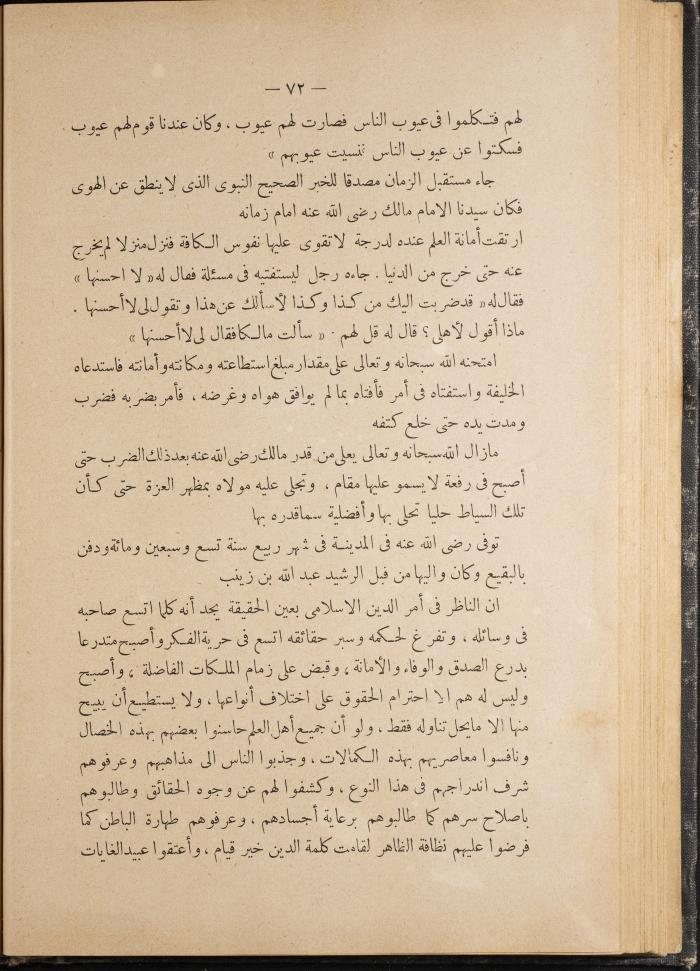 — ٧٢ —
لهم فتكلموا فى عيوب الناس فصارت لهم عيوب ، وكان عندنا قوم لهم عيوب
فسكتوا عن عيوب الناس فنسيت عيوبهم »
جاء مستقبل الزمان مصدقا للخبر الصحيح النبوى الذى لا ينطق عن الهوى
فكان سيدنا الامام مالك رضى الله عنه امام زمانه
ارتقت أمانة العلم عنده لدرجة لا تقوى عليها نفوس الكافة فنزل منزلا لم يخرج
عنه حتى خرج من الدنيا . جاءه رجل ليستفتيه فى مسئلة فقال له « لا احسنها »
فقال له « قد ضربت اليك من كذا وكذا لأسألك عن هذا وتقول لى لا أحسنها .
ماذا أقول لأهلى ؟ قال له قل لهم . « سألت مالكا فقال لى لا أحسنها »
امتحنه الله سبحانه وتعالى على مقدار مبلغ استطاعته ومكانته وأمانته فاستدعاه
الخليفة واستفتاه فى أمر فأفتاه بما لم يوافق هواه وغرضه ، فأمر بضربه فضرب
ومدت يده حتى خلع كتفه
مازال الله سبحانه وتعالى يعلى من قدر مالك رضى الله عنه بعد ذلك الضرب حتى
أصبح فى رفعة لا يسمو عليها مقام ، وتجلى عليه مولاه بمظهر العزة حتى كأن
تلك السياط حليا تحلى بها وأفضلية سما قدره بها
توفى رضى الله عنه فى المدينة فى شهر ربيع سنة تسع وسبعين ومائة ودفن
بالبقيع وكان واليها من قبل الرشيد عبد الله بن زينب
ان الناظر فى أمر الدين الاسلامى بعين الحقيقة يجد أنه كلما اتسع صاحبه
فى وسائله ، وتفرغ لحكمه وسبر حقائقه اتسع فى حرية الفكر وأصبح متدرعا
بدرع الصدق والوفاء والأمانة ، وقبض على زمام الملكات الفاضلة ، وأصبح
وليس له هم الا احترام الحقوق على اختلاف أنواعها ، ولا يستطيع أن يبيح
منها الا مايحل تناوله فقط ، ولو أن جميع أهل العلم حاسنوا بعضهم بهذه الخصال
ونافسوا معاصريهم بهذه الكمالات ، وجذبوا الناس الى مذاهبهم وعرفوهم
شرف اندراجهم فى هذا النوع ، وكشفوا لهم عن وجوه الحقائق وطالبوهم
باصلاح سرهم كما طالبوهم برعاية أجسادهم ، وعرفوهم طهارة الباطن كما
فرضوا عليهم نظافة الظاهر لقامت كلمة الدين خير قيام ، وأعتقوا عبيد الغايات